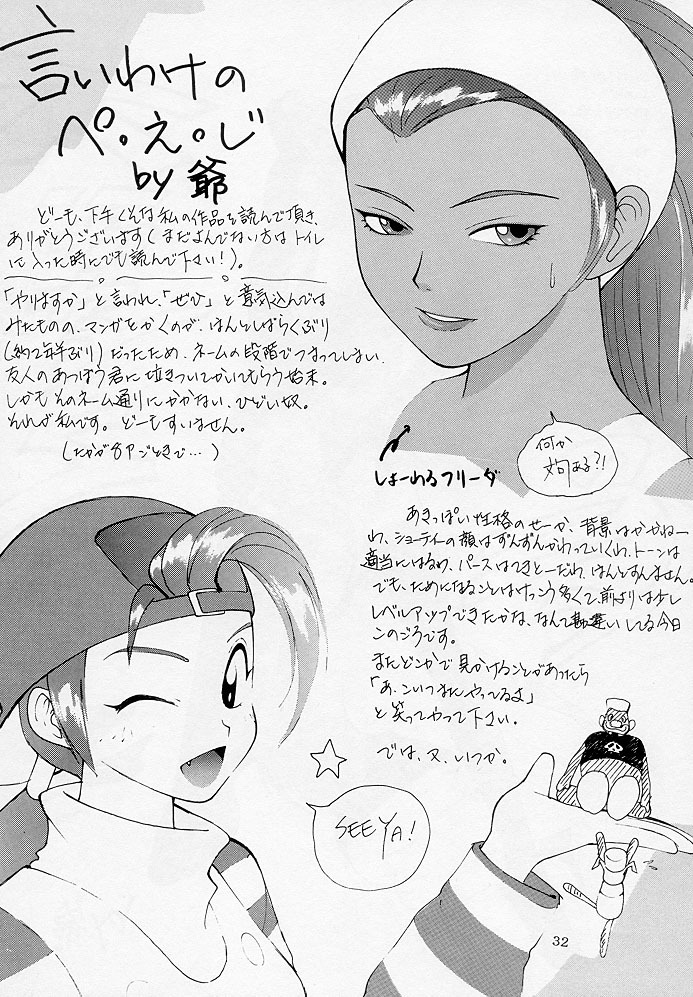 言いわけの
ぺ。え。じ
by 爺
どーも、下手くそな私の作品を読んで頂き、
ありがとうございます(まだよんでない方はトイレ
に入った時にでも読んで下さい!)。
「やりますか」と言われ、「ぜひ」と意気込んでは
みたものの、マンガをかくのが、ほんとしばらくぶり
(約2年半ぶり)だったため、ネームの段階でつまってしまい、
友人のあっぽう君に泣きついてかいてもらう始末。
しかもそのネーム通りにかかない、ひどい奴。
それが私です。どーもすいません。
(たかが8Pごときで…)
何か
文句ある?!
しょーわるフリーダ
あきっぽい性格のせーか、背景はかかねー
わ、ショーティーの顔はずんずんかわっていくわ、トーンは
適当にはるわ、パースはてきとーだわ、ほんとすんません。
でも、ためになることはけっこう多くて、前よりは少し
レベルアップできたかな、なんて勘違いしてる今日
このごろです。
またどこかで見かけることがあったら
「あ、こいつまたやってるよ」
と笑ってやって下さい。
では、又、いつか。
SEE YA!
32